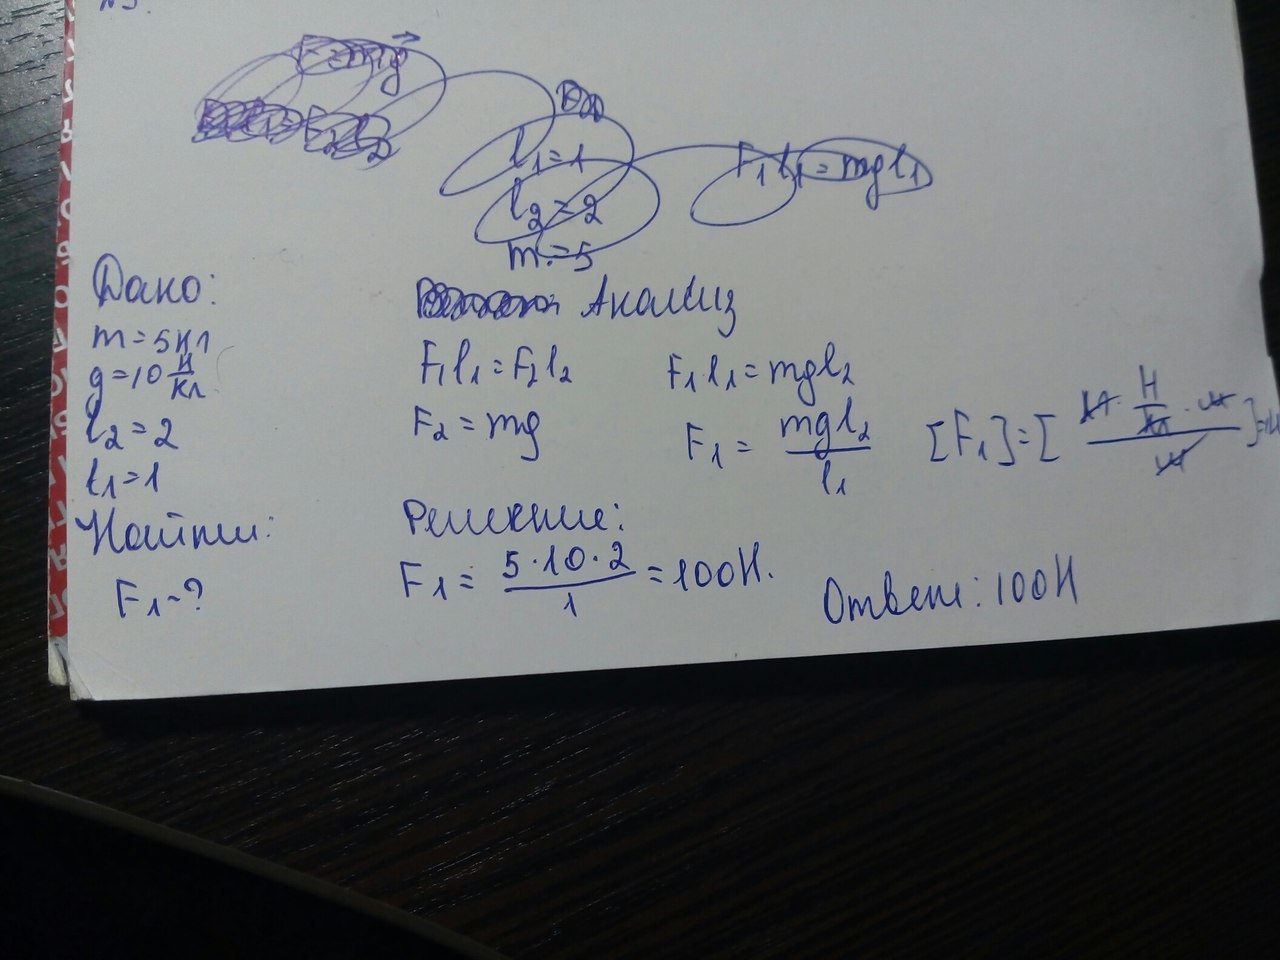 N3.
F = mg
F₂l₂
l₁=1
l₂=2
m=5
F₁l₁=mgl₁
Дано:
m=5кг
g=10 Н/кг
l₂=2
l₁=1
Найти:
F₁-?
Анализ
F₁l₁=F₂l₂
F₂=mg
F₁l₁=mgl₂
F₁= mgl₂/l₁
[F₁]=[ кг·Н/кг·м / м ]=Н
Решение:
F₁= 5·10·2/1 =100Н.
Ответ: 100Н